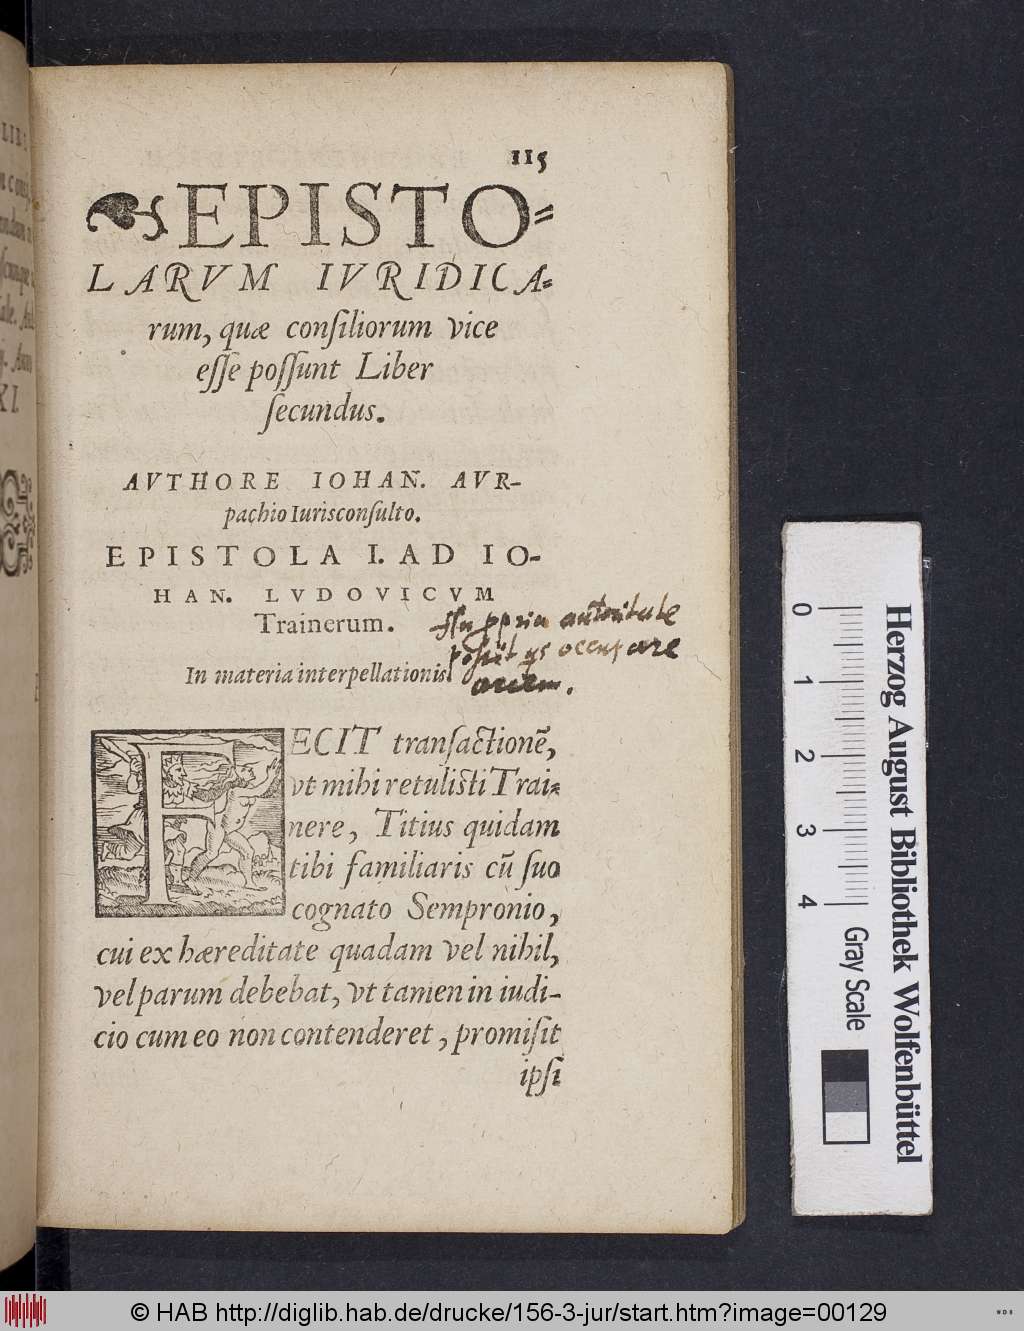 115
EPISTO=
LARVM IVRIDICA=
rum, quæ conſiliorum vice
eſſe poſſunt Liber
ſecundus.
AVTHORE IOHAN. AVR-
pachio Iurisconſulto.
EPISTOLA I. AD IO-
HAN. LVDOVICVM
Trainerum.
In materia interpellationis.
autoritate
occupare
FECIT tranſactionē,
vt mihi retuliſti Trai=
nere, Titius quidam
tibi familiaris cū ſuo
cognato Sempronio,
cui ex hæreditate quadam vel nihil,
vel parum debebat, vt tamen in iudi-
cio cum eo non contenderet, promiſit
ipſi
0 1 2 3 4
Gray Scale
Herzog August Bibliothek Wolfenbüttel
© HAB http://diglib.hab.de/drucke/156-3-jur/start.htm?image=00129